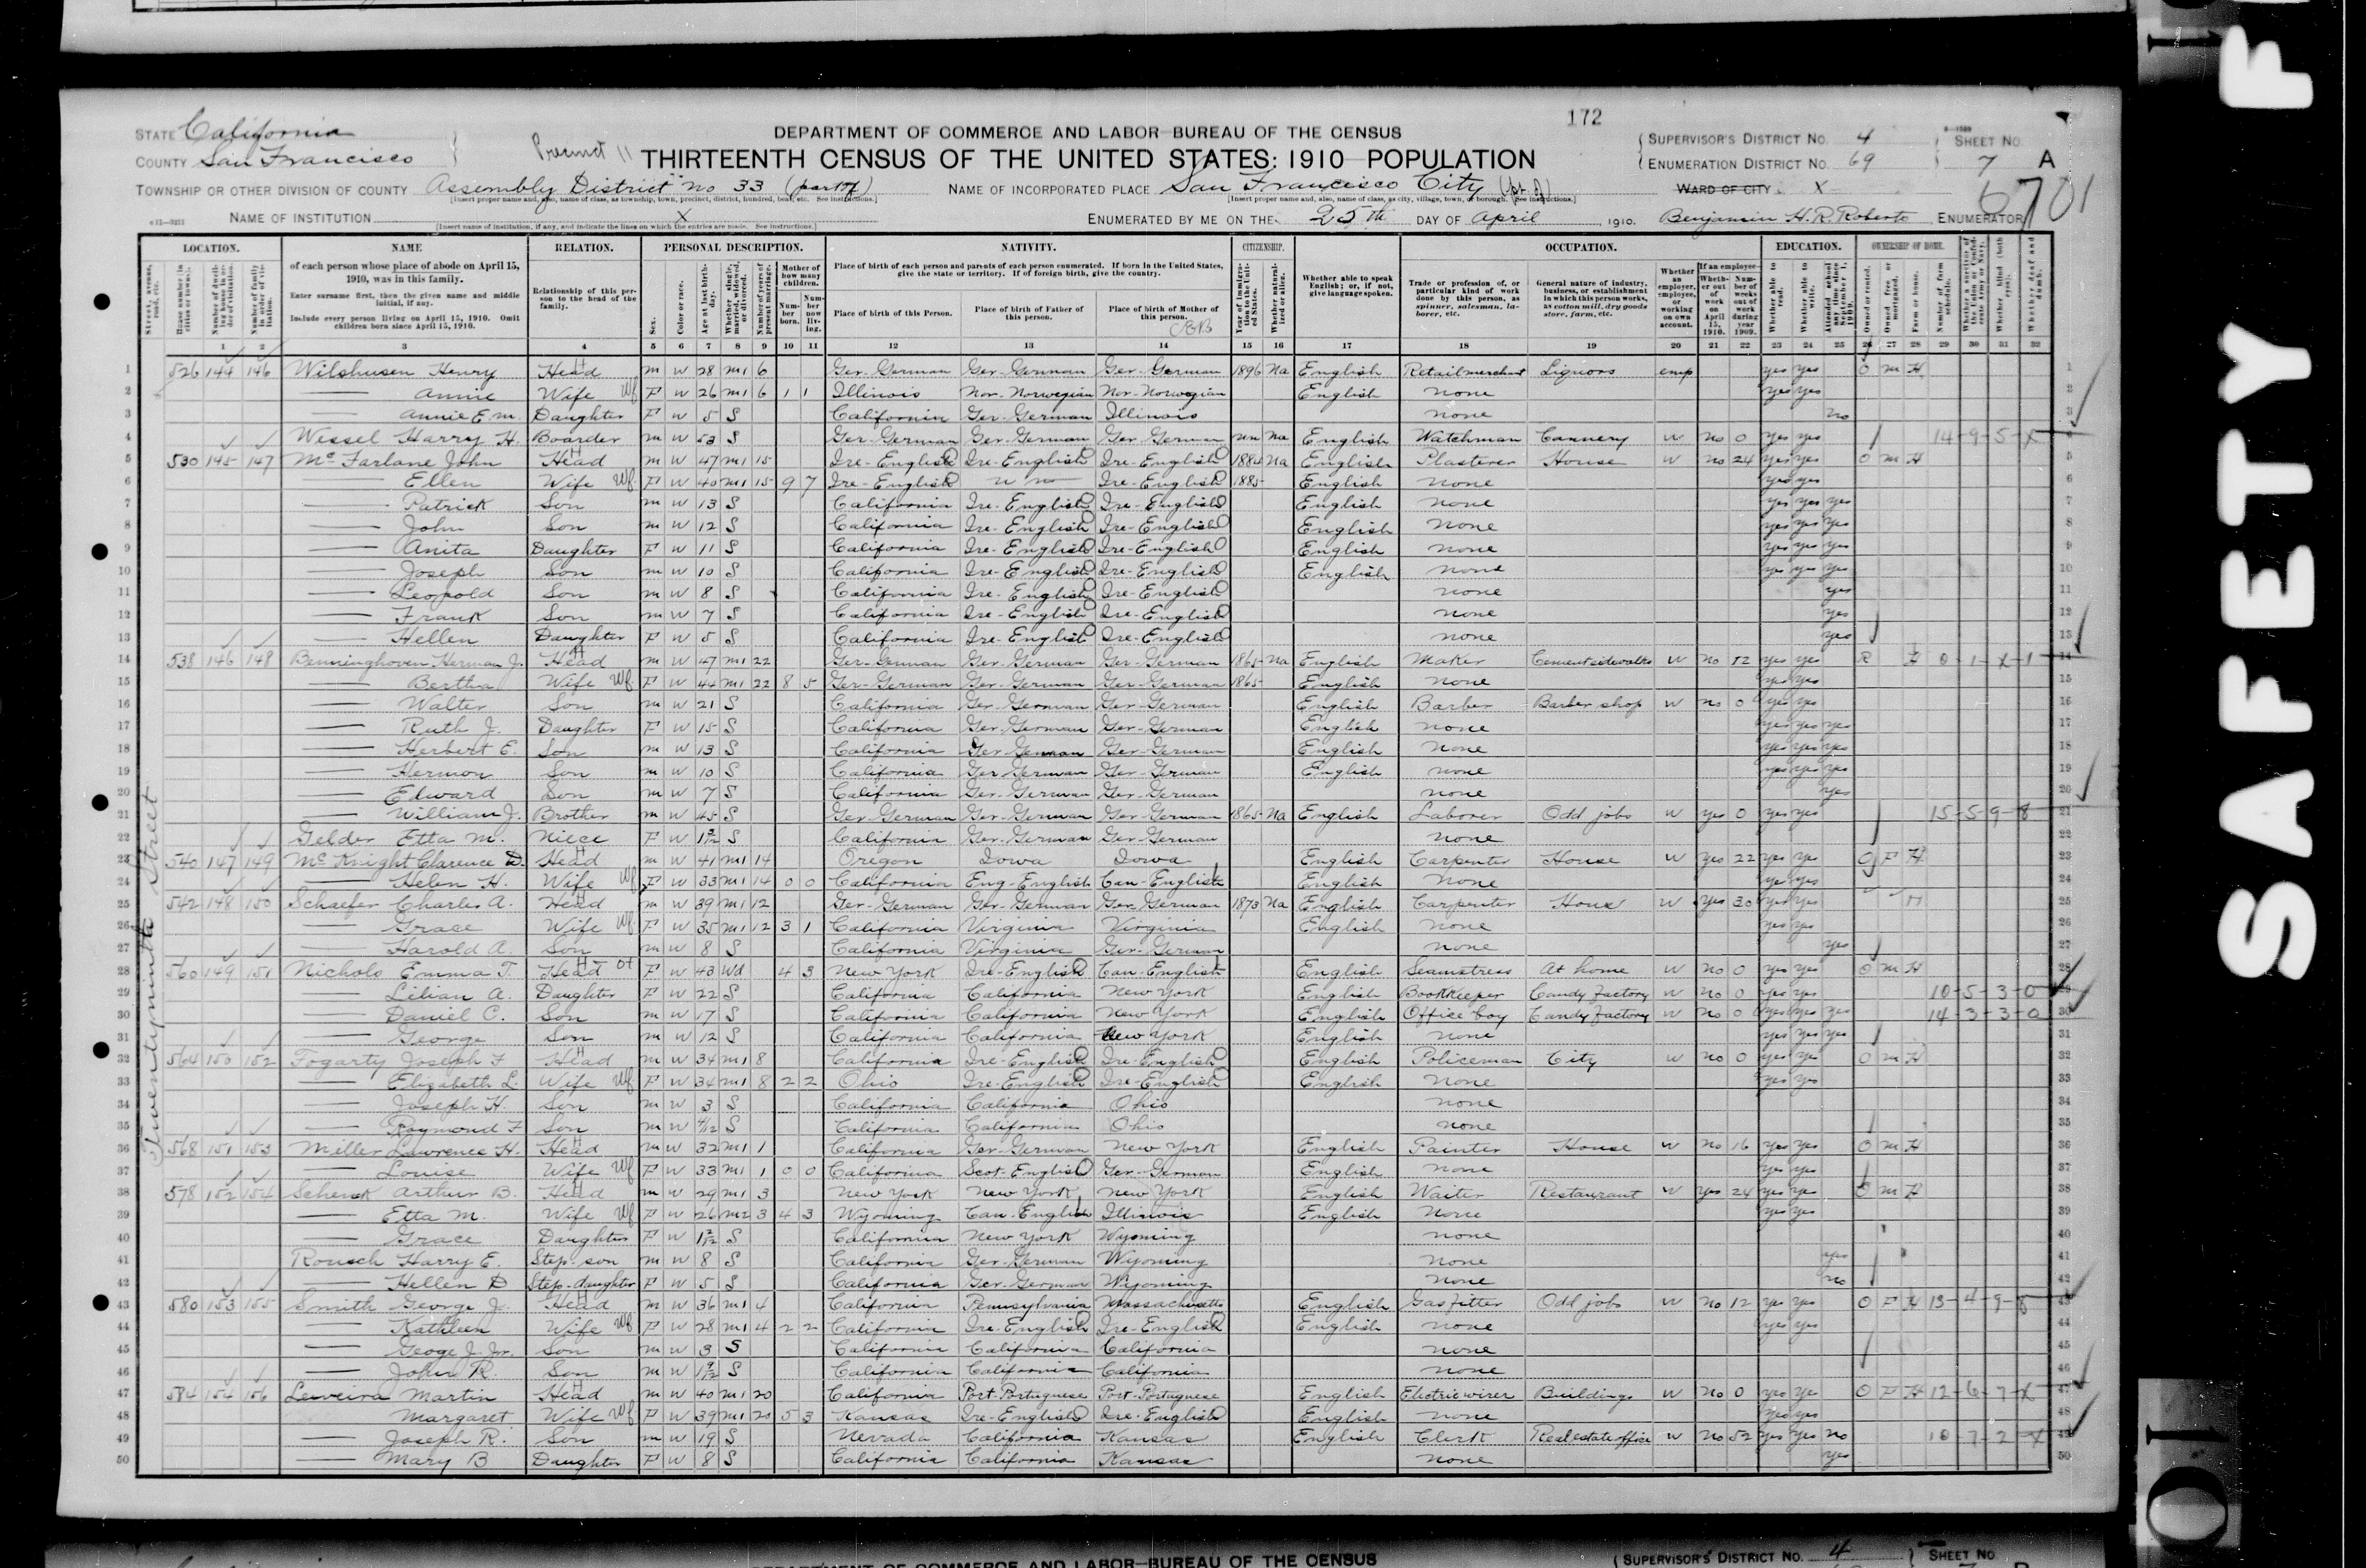 172
STATE California
COUNTY San Francisco
Precinct 11
DEPARTMENT OF COMMERCE AND LABOR-BUREAU OF THE CENSUS
THIRTEENTH CENSUS OF THE UNITED STATES: 1910-POPULATION
SUPERVISOR'S DISTRICT NO. 4
ENUMERATION DISTRICT NO. 69
SHEET NO. 7 A
TOWNSHIP OR OTHER DIVISION OF COUNTY Assembly District no 33 (part of)
NAME OF INCORPORATED PLACE San Francisco City (pt. of)
WARD OF CITY X
6701
NAME OF INSTITUTION X
ENUMERATED BY ME ON THE 25th DAY OF April 1910. Benjamin H. R. Roberts ENUMERATOR
LOCATION. NAME RELATION. PERSONAL DESCRIPTION. NATIVITY. CITIZENSHIP. OCCUPATION. EDUCATION. OWNERSHIP OF HOME.
of each person whose place of abode on April 15, 1910, was in this family.
Enter surname first, then the given name and middle initial, if any.
Include every person living on April 15, 1910. Omit children born since April 15, 1910.
Relationship of this person to the head of the family.
Place of birth of each person and parents of each person enumerated. If born in the United States, give the state or territory. If of foreign birth, give the country.
Place of birth of this Person. Place of birth of Father of this person. Place of birth of Mother of this person.
Whether able to speak English; or, if not, give language spoken.
Trade or profession of, or particular kind of work done by this person, as spinner, salesman, laborer, etc.
General nature of industry, business, or establishment in which this person works, as cotton mill, dry goods store, farm, etc.
1 2 3 4 5 6 7 8 9 10 11 12 13 14 15 16 17 18 19 20 21 22 23 24 25 26 27 28 29 30 31 32
Twentyninth Street
1 526 144 146 Wilshusen Henry Head m W 28 m1 6 Ger-German Ger-German Ger-German 1896 Na English Retail merchant Liquors emp yes yes O m H
2 Annie Wife F W 26 m1 6 1 1 Illinois Nor-Norwegian Nor-Norwegian English none yes yes
3 Annie E. m. Daughter F W 5 S California Ger-German Illinois none no
4 Wessel Harry H. Boarder m W 53 S Ger-German Ger-German Ger-German un Na English Watchman Cannery W no 0 yes yes 14-9-5-X
5 530 145 147 McFarlane John Head m W 47 m1 15 Ire-English Ire-English Ire-English 1884 Na English Plasterer House W no 24 yes yes O m H
6 Ellen Wife F W 40 m1 15 9 7 Ire-English un Ire-English 1885 English none yes yes
7 Patrick Son m W 13 S California Ire-English Ire-English English none yes yes yes
8 John Son m W 12 S California Ire-English Ire-English English none yes yes yes
9 Anita Daughter F W 11 S California Ire-English Ire-English English none yes yes yes
10 Joseph Son m W 10 S California Ire-English Ire-English English none yes yes yes
11 Leopold Son m W 8 S California Ire-English Ire-English none yes
12 Frank Son m W 7 S California Ire-English Ire-English none yes
13 Hellen Daughter F W 5 S California Ire-English Ire-English none yes
14 538 146 148 Benninghoven Herman J. Head m W 47 m1 22 Ger-German Ger-German Ger-German 1865 Na English Maker Cement sidewalks W no 12 yes yes R H 0-1-X-1
15 Bertha Wife F W 44 m1 22 8 5 Ger-German Ger-German Ger-German 1865 English none yes yes
16 Walter Son m W 21 S California Ger-German Ger-German English Barber Barber shop W no 0 yes yes
17 Ruth J. Daughter F W 15 S California Ger-German Ger-German English none yes yes yes
18 Herbert E. Son m W 13 S California Ger-German Ger-German English none yes yes yes
19 Hermon Son m W 10 S California Ger-German Ger-German English none yes yes yes
20 Edward Son m W 7 S California Ger-German Ger-German none yes
21 William J. Brother m W 45 S Ger-German Ger-German Ger-German 1865 Na English Laborer Odd jobs W yes 0 yes yes 15-5-9-8
22 Gelder Etta M. Niece F W S California Ger-German Ger-German none
23 540 147 149 McKnight Clarence D. Head m W 41 m1 14 Oregon Iowa Iowa English Carpenter House W yes 22 yes yes O F H
24 Helen H. Wife F W 33 m1 14 0 0 California Eng-English Can-English English none yes yes
25 542 148 150 Schaefer Charles A. Head m W 39 m1 12 Ger-German Ger-German Ger-German 1873 Na English Carpenter House W yes 30 yes yes H
26 Grace Wife F W 35 m1 12 3 1 California Virginia Virginia English none yes yes
27 Harold A. Son m W 8 S California Virginia Ger-German none yes
28 560 149 151 Nichols Emma T. Head F W 43 Wd 4 3 New York Ire-English Can-English English Seamstress At home W no 0 yes yes O m H
29 Lilian A. Daughter F W 22 S California California New York English Bookkeeper Candy factory W no 0 yes yes 10-5-3-0
30 Daniel C. Son m W 17 S California California New York English Office boy Candy factory W no 0 yes yes yes 14-3-3-0
31 George Son m W 12 S California California New York English none yes yes yes
32 564 150 152 Fogarty Joseph F Head m W 34 m1 8 California Ire-English Ire-English English Policeman City W no 0 yes yes O m H
33 Elizabeth L. Wife F W 34 m1 8 2 2 Ohio Ire-English Ire-English English none yes yes
34 Joseph H. Son m W 3 S California California Ohio none
35 Raymond F Son m W S California California Ohio none
36 568 151 153 Miller Lawrence H. Head m W 32 m1 1 California Ger-German New York English Painter House W no 16 yes yes O m H
37 Louise Wife F W 33 m1 1 0 0 California Scot-English Ger-German English none yes yes
38 578 152 154 Schenck Arthur B. Head m W 29 m1 3 New York New York New York English Waiter Restaurant W yes 24 yes yes O m H
39 Etta M. Wife F W 26 m2 3 4 3 Wyoming Can-English Illinois English None yes yes
40 Grace Daughter F W S California New York Wyoming none
41 Rousch Harry E. Step-son m W 8 S California Ger-German Wyoming none yes
42 Hellen D Step-daughter F W 5 S California Ger-German Wyoming none no
43 580 153 155 Smith George J. Head m W 36 m1 4 California Pennsylvania Massachusetts English Gas fitter Odd jobs W no 12 yes yes O F H 13-4-9-8
44 Kathleen Wife F W 28 m1 4 2 2 California Ire-English Ire-English English none yes yes
45 Geoge J. Jr. Son m W 3 S California California California none
46 John R. Son m W S California California California none
47 584 154 156 Leiveira Martin Head m W 40 m1 20 California Port-Portuguese Port-Portuguese English Electric wirer Buildings W no 0 yes ye O F H 12-6-7-X
48 Margaret Wife F W 39 m1 20 5 3 Kansas Ire-English Ire-English English none yes yes
49 Joseph R. Son m W 19 S Nevada California Kansas English Clerk Real estate office W no 52 yes yes no 10-7-2-X
50 Mary B Daughter F W 8 S California California Kansas none yes
SAFETY F
DEPARTMENT OF COMMERCE AND LABOR-BUREAU OF THE CENSUS
SUPERVISOR'S DISTRICT NO. 4
SHEET NO.